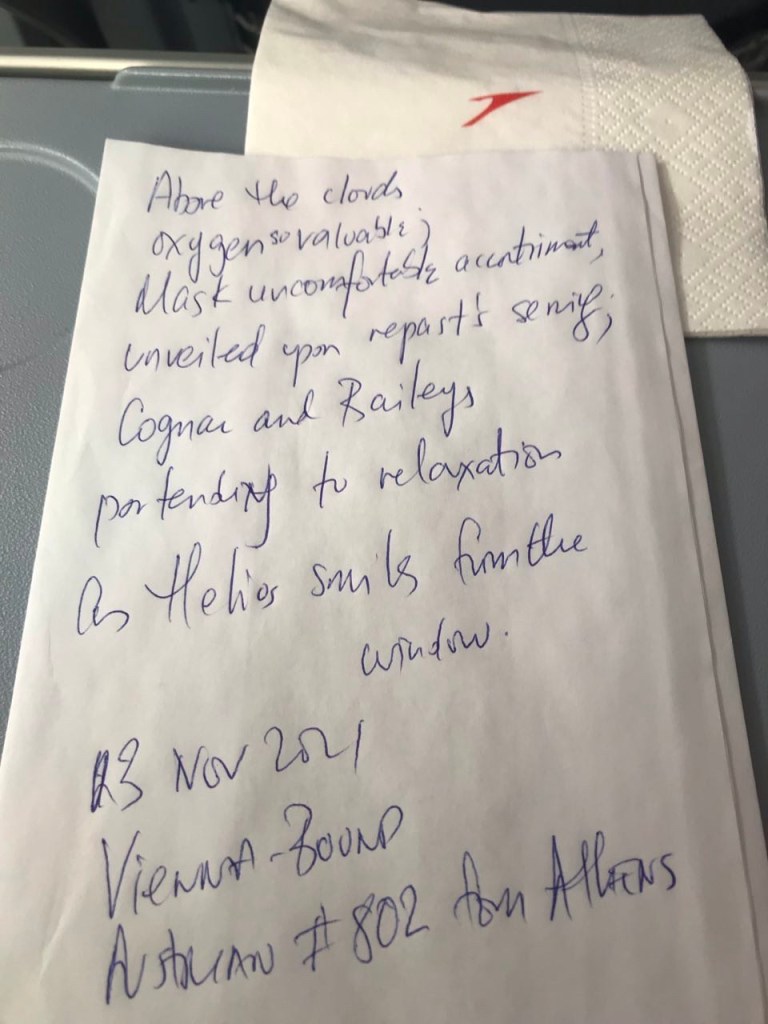 Above the clouds
oxygen so valuable;
Mask uncomfortable accentriment,
unveiled upon repast's serving;
Cognac and Baileys
portending to relaxation
as Helios smiles from the
window.
23 NOV 2021
VIENNA-BOUND
AUSTRIAN #802 from ATHENS